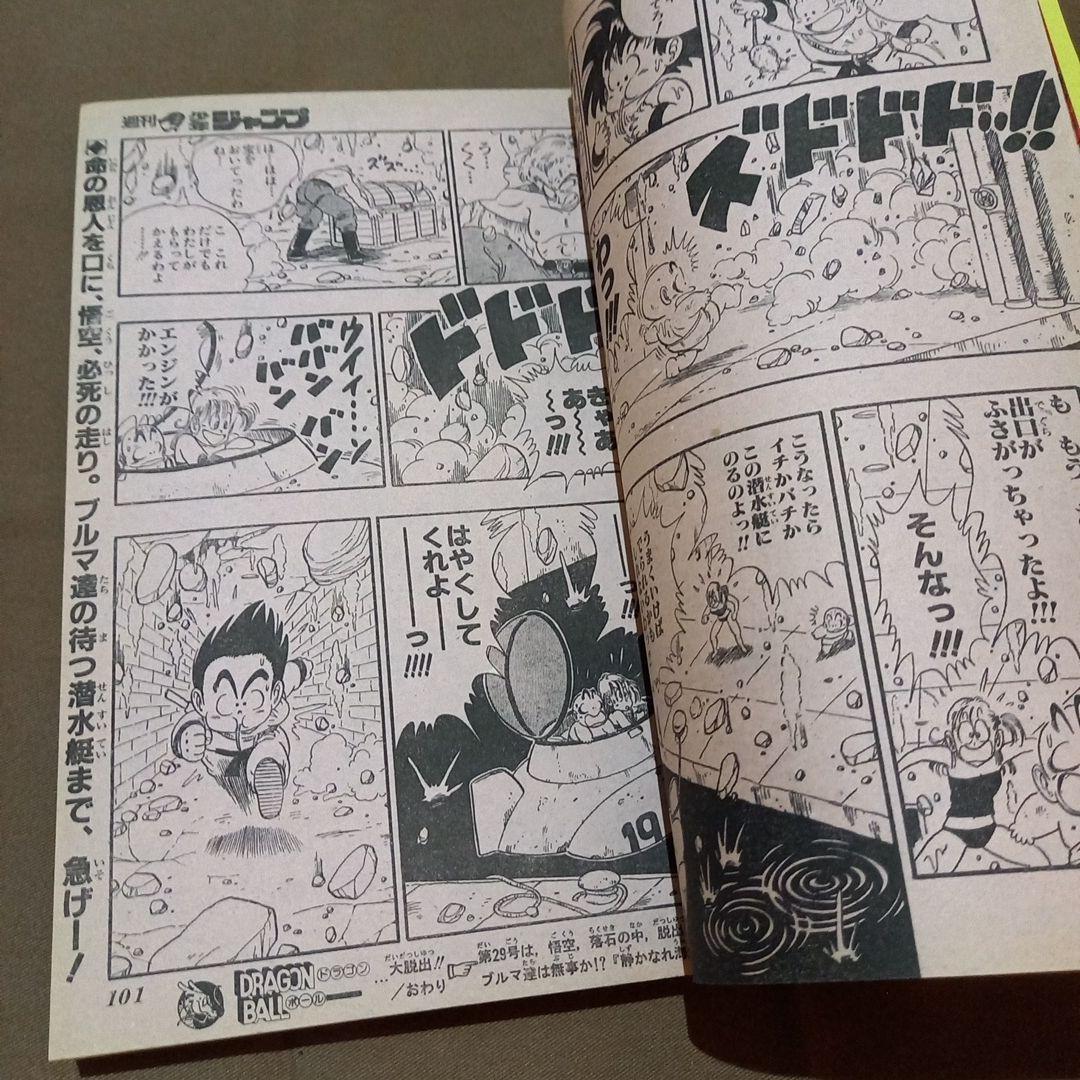 でろ!
ドドドド!!
わっ!!
もももう
出口が
ふさがっちゃったよ!!!
そんなっ!!!
こうなったら
イチかバチか
この潜水艇に
のるのよっ!!
週刊少年ジャンプ
う…
くく…
ほーほほー
宝を
おいてったら
ねー
ズズ…
こ これ
だけでも
わたしが
もらって
かえるわよ
……!!
ドドドド
きゃあ
あ〜
〜っ!!!
ウイイ…ン
ババン
バン
バン
エンジンが
かかった!!!
はやくして
くれよ——
——っ!!!!
19
命の恩人を口に、悟空、必死の走り。ブルマ達の待つ潜水艇まで、急げー!
101
DRAGON BALL
ドラゴン
ボール
第29号は,悟空,落石の中,脱出
大脱出!!
ブルマ達は無事か!?『静かなれ海
…/おわり